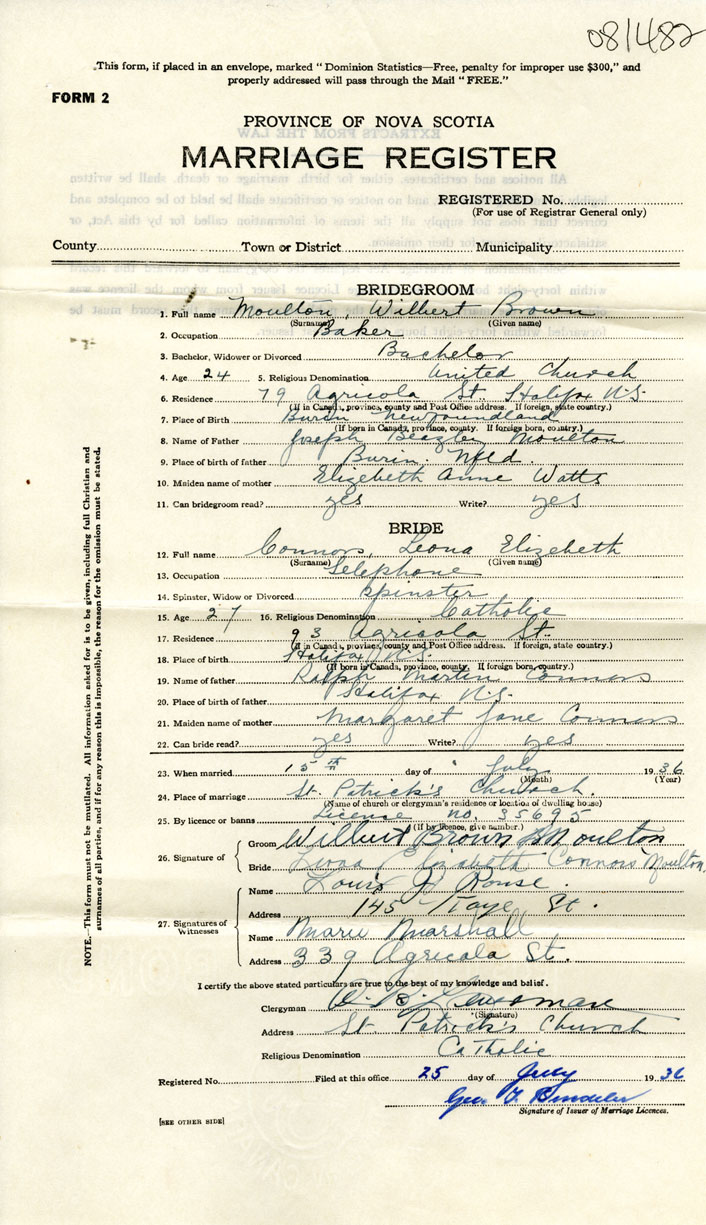 081482
This form, if placed in an envelope, marked "Dominion Statistics—Free, penalty for improper use $300," and
properly addressed will pass through the Mail "FREE."
FORM 2
PROVINCE OF NOVA SCOTIA
MARRIAGE REGISTER
REGISTERED No.
(For use of Registrar General only)
County Town or District Municipality
BRIDEGROOM
1. Full name Moulton, Wilbert Brown
(Surname) (Given name)
2. Occupation Baker
3. Bachelor, Widower or Divorced Bachelor
4. Age 24 5. Religious Denomination United Church
6. Residence 79 Agricola St. Halifax N.S.
(If in Canada, province, county and Post Office address. If foreign, state country.)
7. Place of Birth Burin Newfoundland
(If born in Canada, province, county. If foreign born, country.)
8. Name of Father Joseph Beazley Moulton
9. Place of birth of father Burin. Nfld.
10. Maiden name of mother Elizebeth Anne Watts
11. Can bridegroom read? yes Write? yes
BRIDE
12. Full name Connors, Leona Elizebeth
(Surname) (Given name)
13. Occupation Telephone
14. Spinster, Widow or Divorced Spinster
15. Age 27 16. Religious Denomination Catholic
17. Residence 93 Agricola St.
(If in Canada, province, county and Post Office address. If foreign, state country.)
18. Place of birth Halifax N.S.
(If born in Canada, province, county. If foreign born, country.)
19. Name of father Ralph Martin Connors
20. Place of birth of father Halifax N.S.
21. Maiden name of mother Margaret Jane Connors
22. Can bride read? yes Write? yes
23. When married 15th day of July 1936
(Month) (Year)
24. Place of marriage St. Patrick's Church.
(Name of church or clergyman's residence or location of dwelling house)
25. By licence or banns License no. 35695
(If by licence, give number.)
26. Signature of
Groom Wilbert Brown Moulton
Bride Leona Elizabeth Connors Moulton.
27. Signatures of Witnesses
Name Louis J. Rouse.
Address 145 Kaye St.
Name Marie Marshall
Address 339 Agricola St.
I certify the above stated particulars are true to the best of my knowledge and belief.
Clergyman
(Signature)
Address St. Patrick's Church
Religious Denomination Catholic
Registered No. Filed at this office 25 day of July 1936
Geo.
Signature of Issuer of Marriage Licences.
[SEE OTHER SIDE]
NOTE.—This form must not be mutilated. All information asked for is to be given, including full Christian and
surnames of all parties, and if for any reason this is impossible, the reason for the omission must be stated.